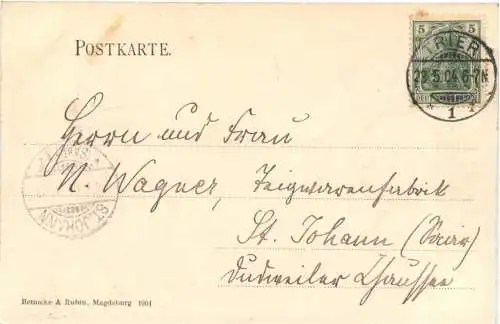 POSTKARTE.
5 5
TRIER
23.5.04.6-7N.
1
Herrn und Frau
N. Wagner, Teigwarenfabrik
St. Johann (Saar)
Dudweiler Chaussee
ST. JOHANN
Reinicke & Rubin, Magdeburg 1901